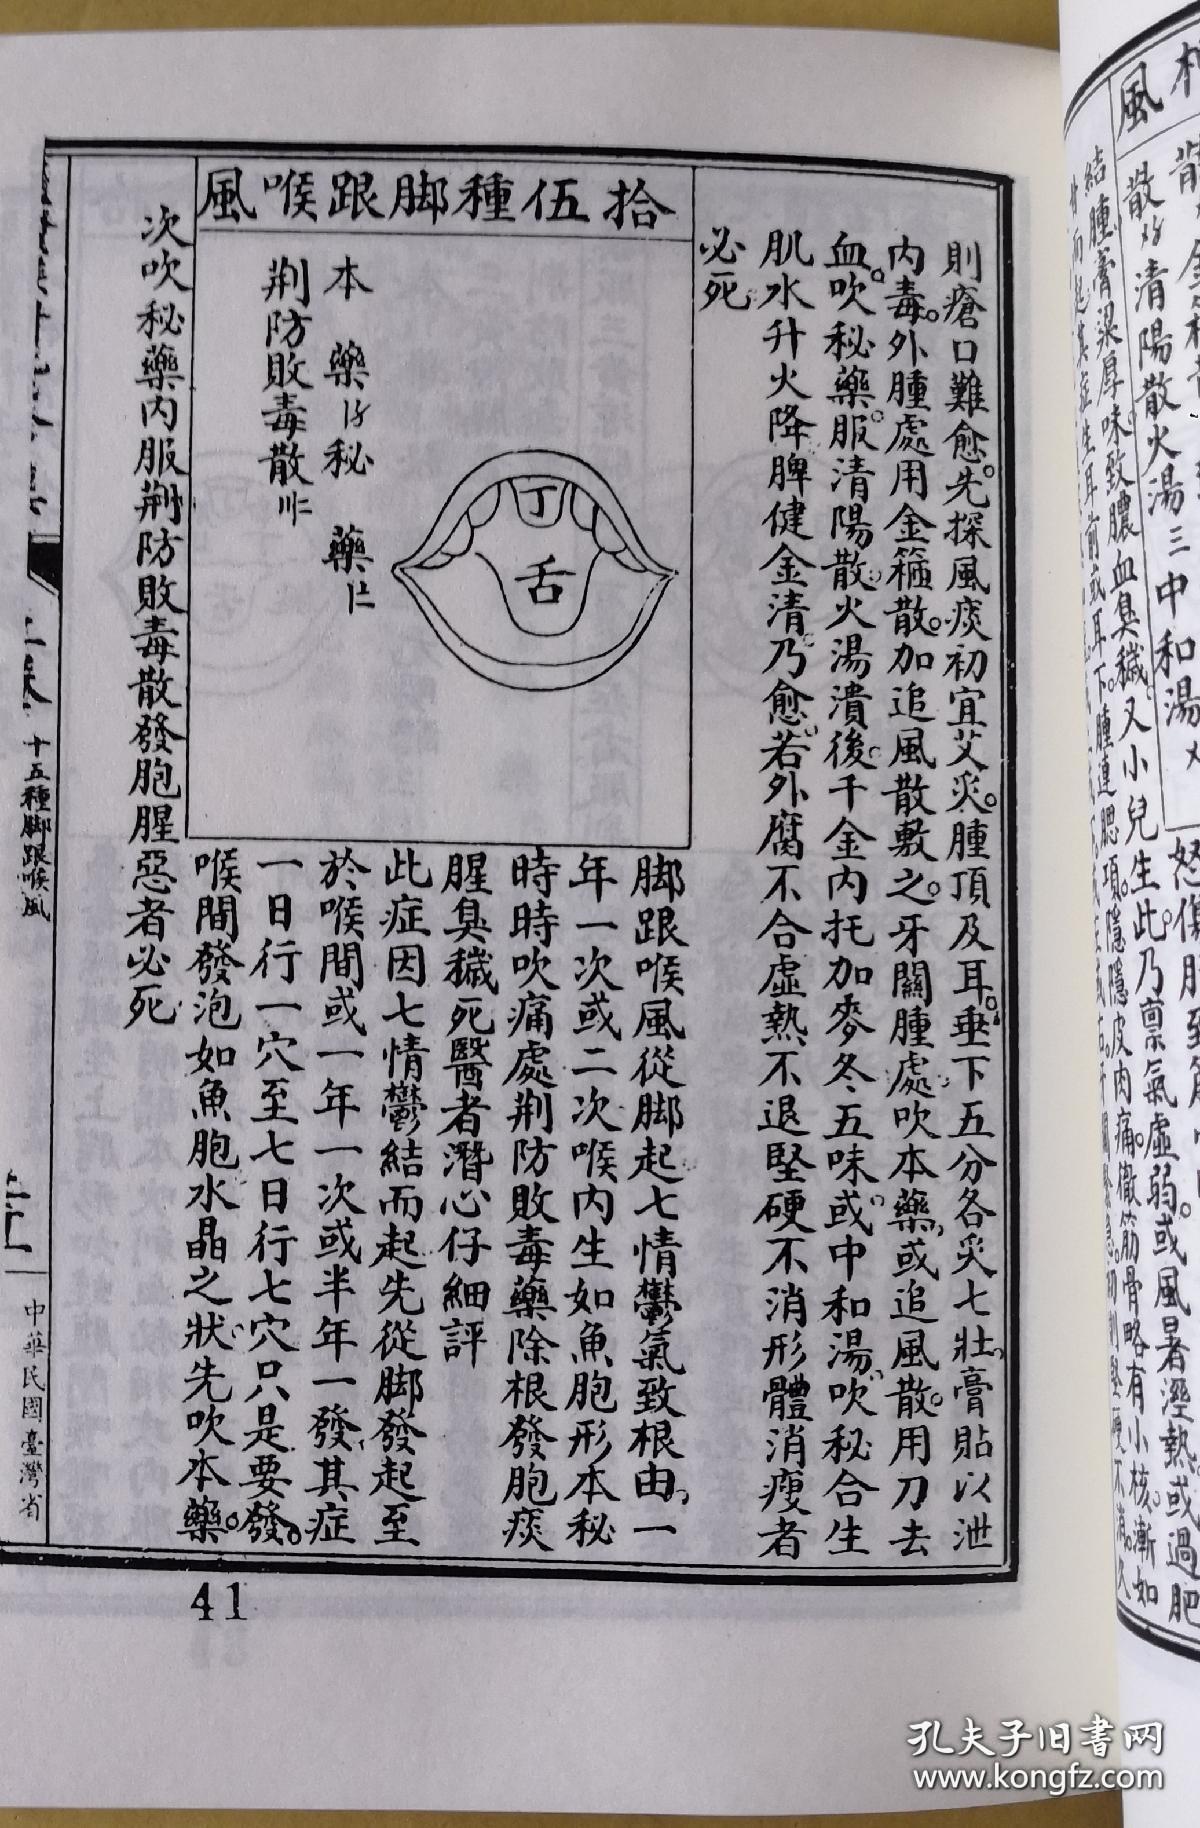 則瘡口難愈。先探風痰初宜艾灸。腫頂及耳。垂下五分各灸七壯、膏貼以泄
內毒。外腫處用金箍散。加追風散敷之。牙關腫處吹本藥、或追風散。用刀去
血。吹秘藥。服清陽散。火湯潰後。千金內托加麥冬五味。或中和湯、吹秘合生
肌水升火降脾健金清。乃愈。若外腐不合虛熱不退堅硬不消形體消瘦者
必死
拾伍種脚跟喉風
丁
舌
本藥 秘藥
荆防敗毒散
脚跟喉風從脚起七情鬱氣致根由、一
年一次或二次喉內生如魚胞形本秘
時時吹痛處荆防敗毒藥除根發胞痰
腥臭穢死醫者潛心仔細評
此症因七情鬱結而起先從脚發起至
於喉間或一年一次或半年一發、其症
一日行一穴至七日行七穴只是要發。
喉間發泡如魚胞水晶之狀先吹本藥。
次吹秘藥內服荆防敗毒散發胞腥惡者必死
十五種脚跟喉風
中華民國臺灣省
41
散 清陽散火湯 三中和湯
結腫膏粱厚味致膿血臭穢。又小兒生此。乃禀氣虛弱。或風暑溼熱或過肥
孔夫子旧书网
www.kongfz.com